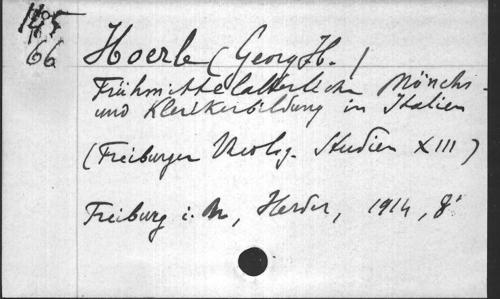 66
Hoerle (Georg H.)
Frühmittelalterliche Mönchs-
und Klerikerbildung in Italien
(Freiburger Theolog. Studien XIII)
Freiburg i. Br., Herder, 1914, 8°